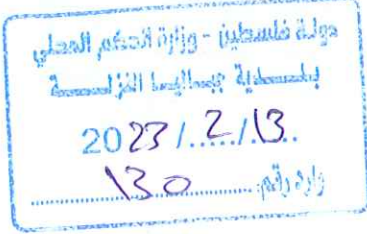 دولة فلسطين - وزارة الحكم المحلي
بلدية جباليا النزلة
2023/2/13
وارد رقم: 130